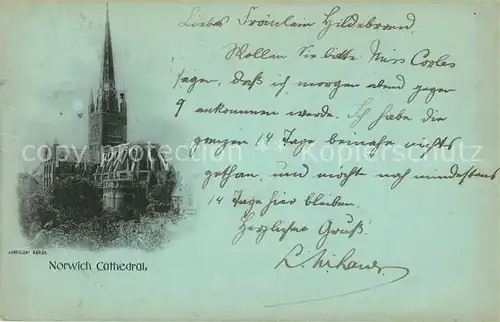 Liebes Fräulein Hildebrand,
Wollen Sie bitte Miss Corles
sagen, daß ich morgen abend gegen
9 ankommen werde. Ich habe die
ganzen 14 Tage beinahe nichts
gethan, und möchte noch mindestens
14 Tage hier bleiben.
Herzlichen Gruß!
L.
JARROLDS' SERIES.
Norwich Cathedral.
copyright